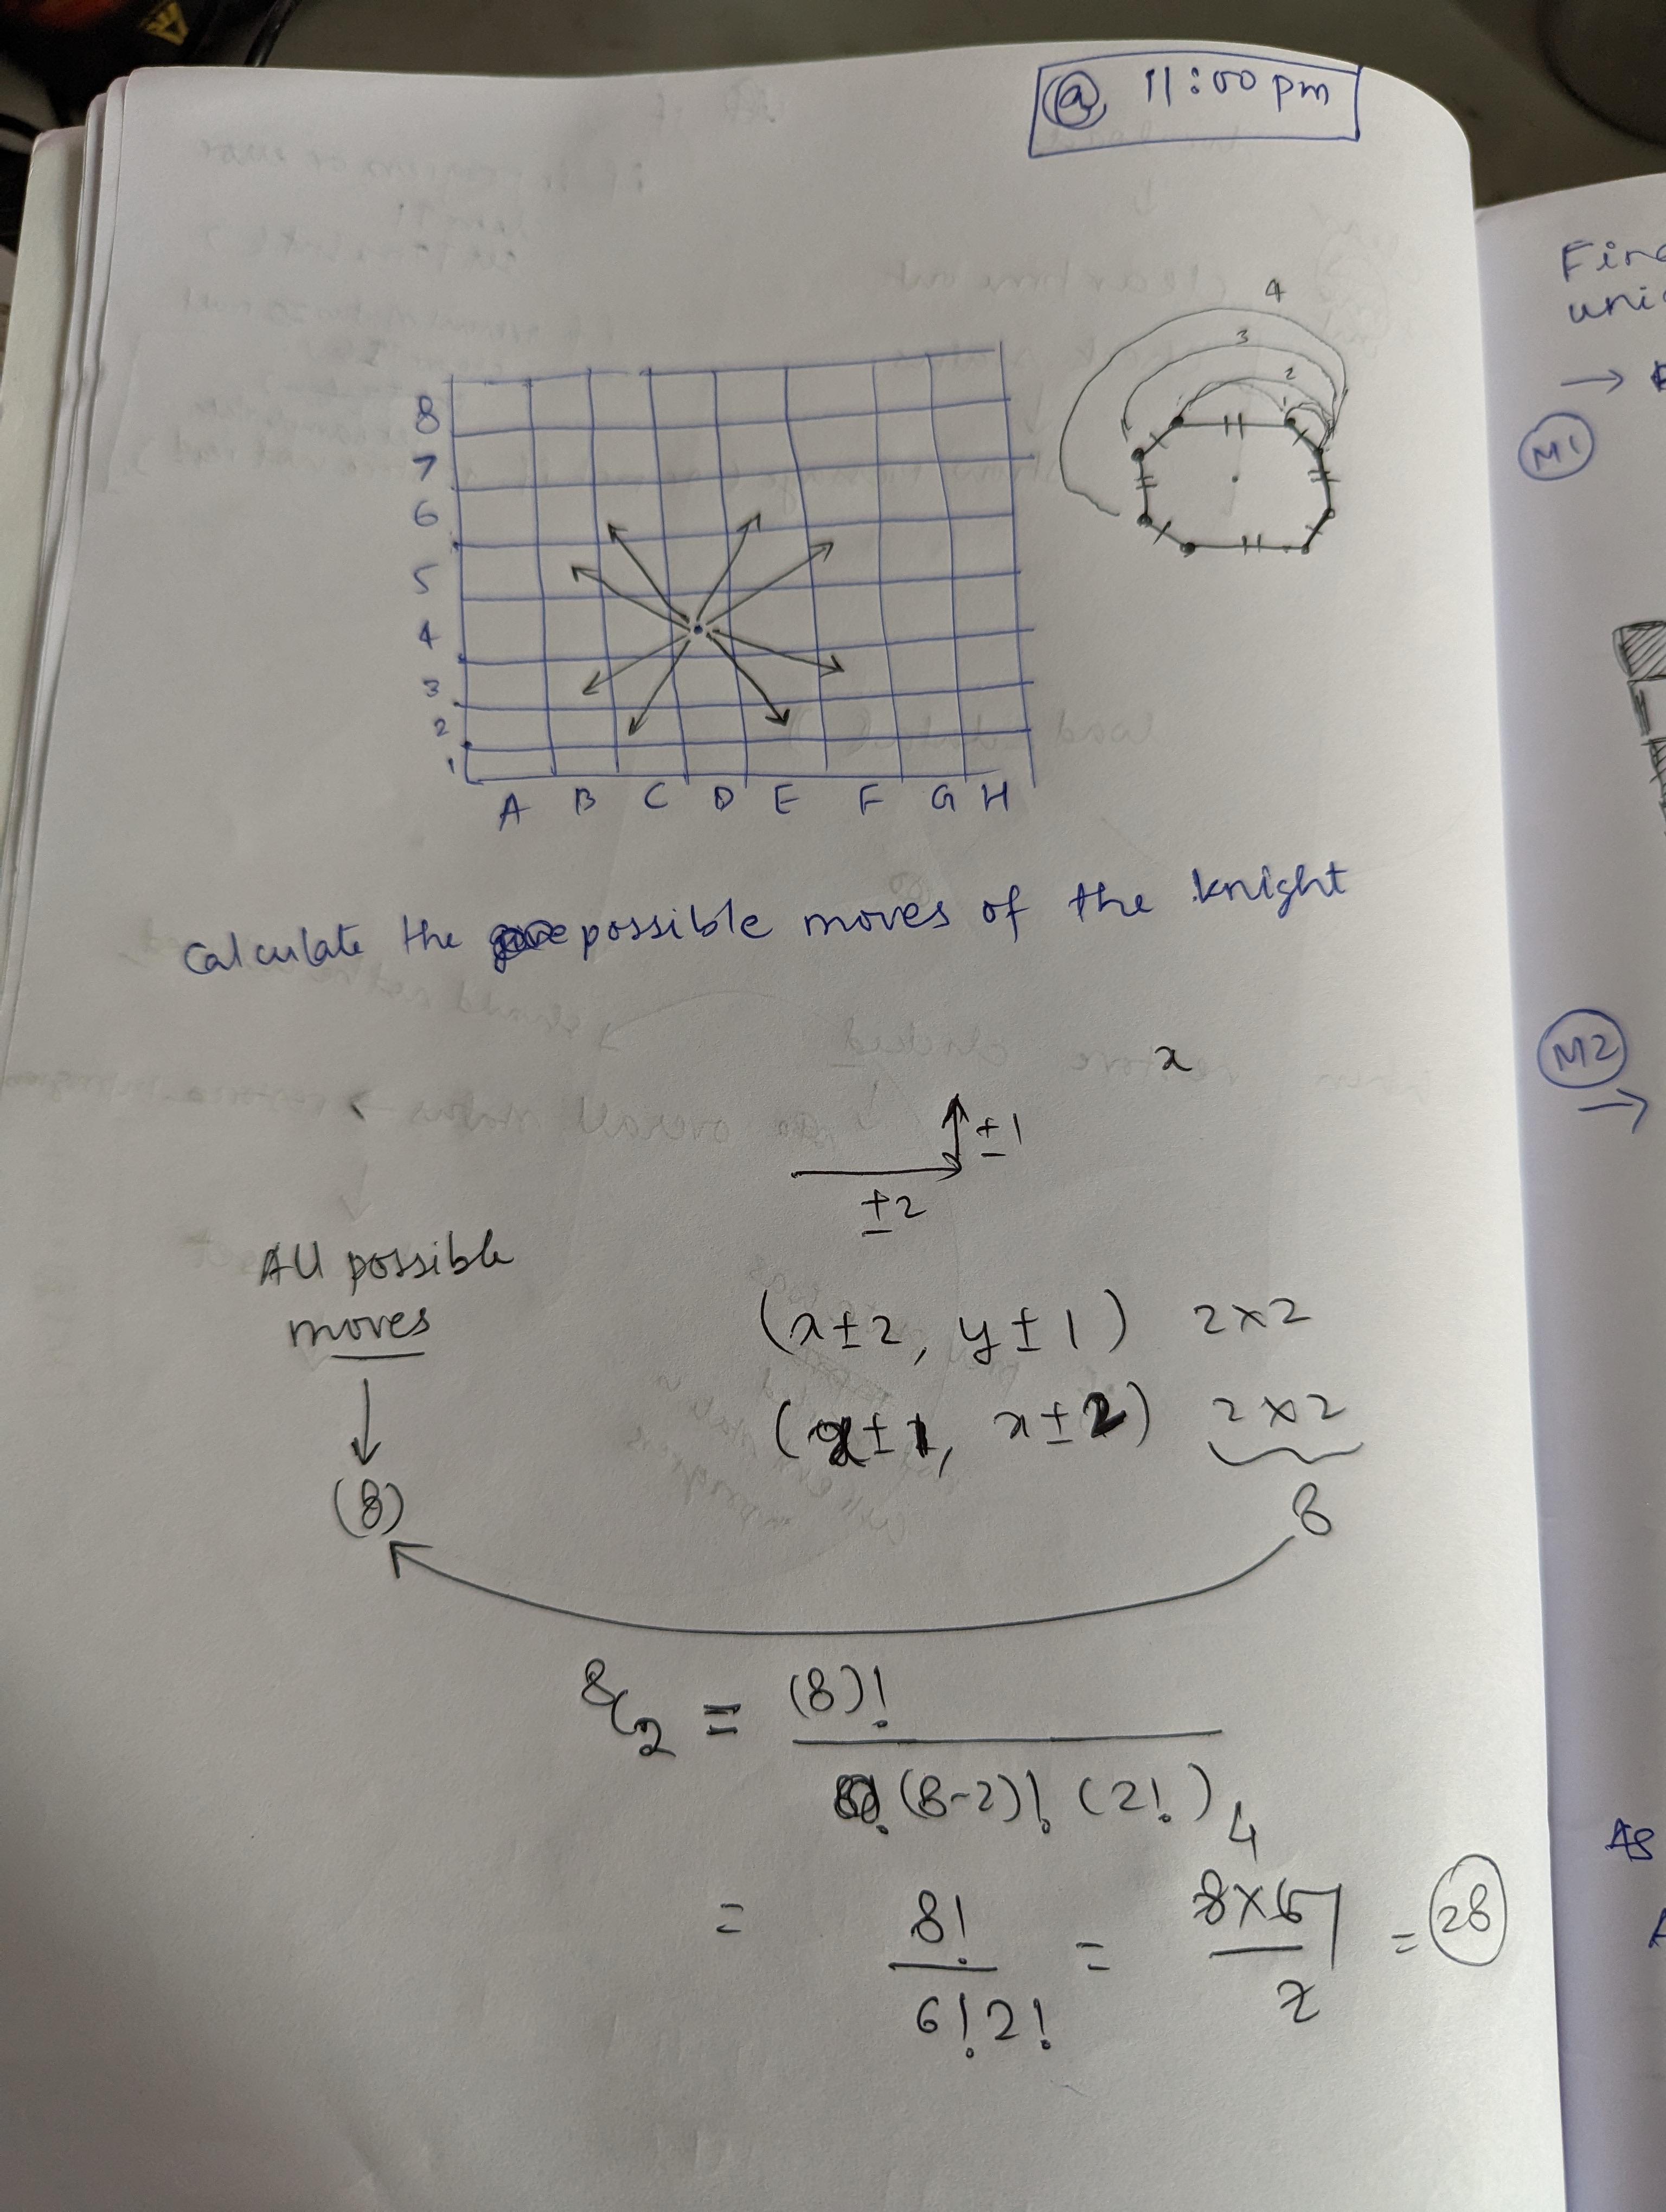 @ 11:00 pm
4
3
2
8
7
6
5
4
3
2
1
A B C D E F G H
Calculate the possible moves of the knight
x
±1
±2
All possible
moves
(x±2, y±1) 2×2
(x±1, x±2) 2×2
(8)
8
8C2 = (8)!
(8-2)! (2!)
4
= 8! / 6!2! = 8×7 / 2 = 28
Find
uni
→
M1
M2
→
As
A